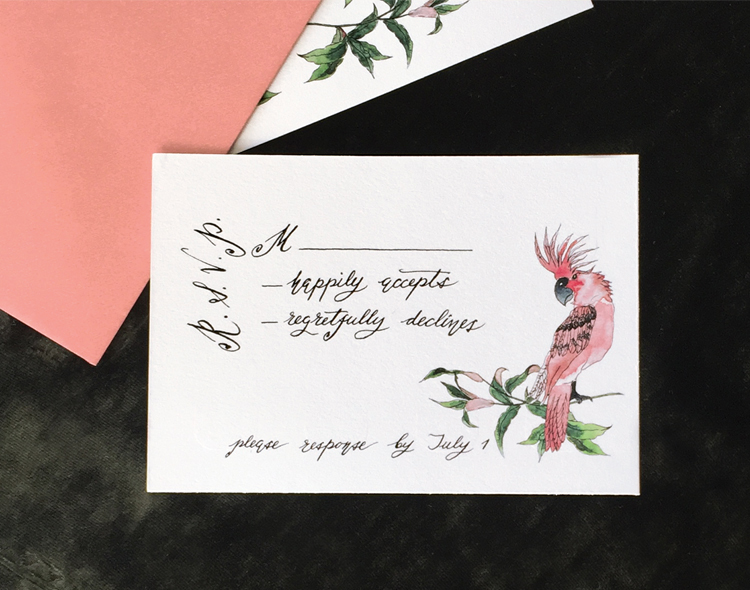 R. S. V. P.
M
happily accepts
regretfully declines
please response by July 1